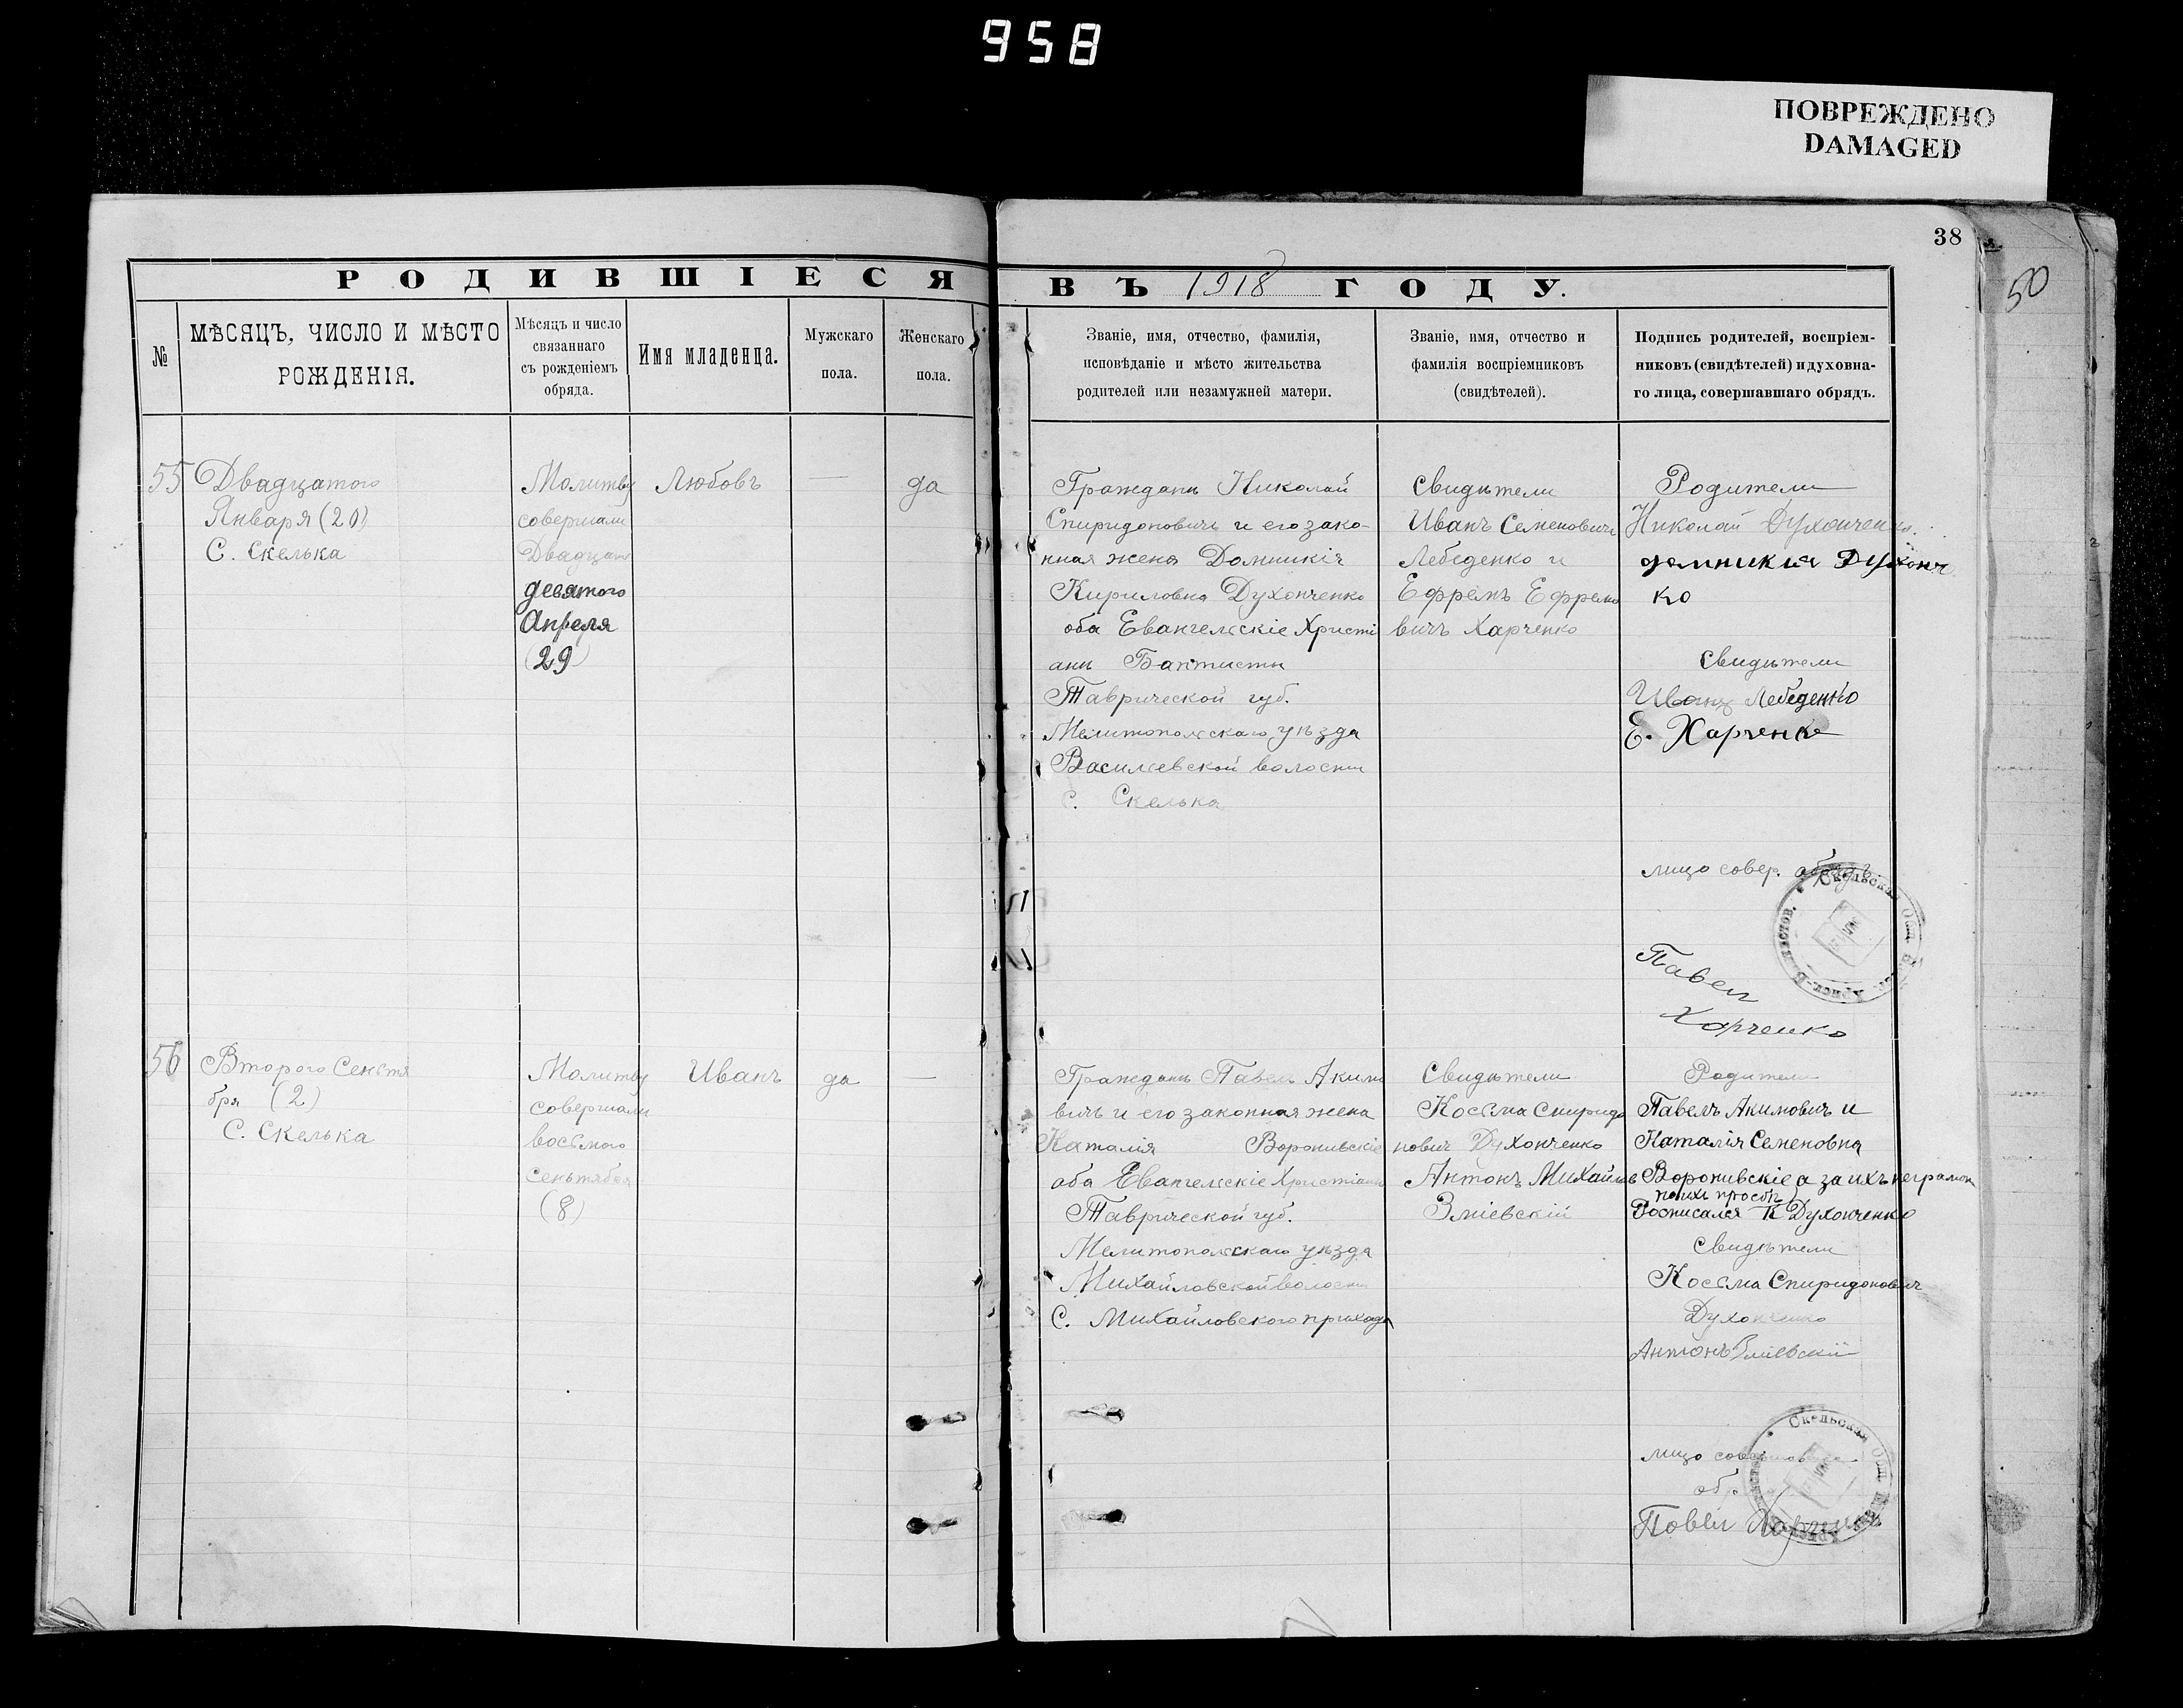 958
ПОВРЕЖДЕНО
DAMAGED
38
50
РОДИВШІЕСЯ ВЪ 1918 ГОДУ.
№
МѢСЯЦЪ, ЧИСЛО И МѢСТО
РОЖДЕНІЯ.
Мѣсяцъ и число
связаннаго
съ рожденіемъ
обряда.
Имя младенца.
Мужскаго
пола.
Женскаго
пола.
Званіе, имя, отчество, фамилія,
исповѣданіе и мѣсто жительства
родителей или незамужней матери.
Званіе, имя, отчество и
фамилія воспріемниковъ
(свидѣтелей).
Подпись родителей, воспріем-
никовъ (свидѣтелей) и духовна-
го лица, совершавшаго обрядъ.
55
Двадцатого
Января (20)
С. Скелька
Молитву
совершали
Двадцать
девятого
Апреля
(29)
Любовъ
—
да
Граждани Николай
Спиридоновичъ и его зако-
нная жена Домникія
Кириловна Духонченко
оба Евангельскіе Христі
ани Баптисты
Таврической губ.
Мелитопольскаго уѣзда
Васильевской волости
С. Скелька
Свидѣтели
Иванъ Семеновичъ
Лебеденко и
Ефремъ Ефремо
вичъ Харченко
Родители
Николай Духонченко.
домникия Духонч
ко
Свидѣтели
Иванъ Лебеденко
Е. Харченко
лицо совер. обрядъ
Павел
Харченко
56
Второго Сеньтя
бря (2)
С. Скелька
Молитву
совершали
восьмого
сеньтября
(8)
Иванъ
да
—
Гражданъ Павелъ Акимо
вичъ и его законная жена
Наталія Воронивскіе
оба Евангельскіе Христіани
Таврической губ.
Мелитопольскаго уѣзда
Михайловской волости
С. Михайловского прихода
Свидѣтели
Косьма Спиридо
новичъ Духонченко
Антонъ Михайлов
Зміевскій
Родители
Павелъ Акимовичъ и
Наталія Семеновна
Воронивскіе а за ихъ неграмот
по ихъ просьбѣ
Росписался К Духонченко
Свидѣтели
Косьма Спиридоновичъ
Духонченко
Антонъ Зміевскій
Скельская Общ.
лицо совершавшее
об.
Павел Харченко